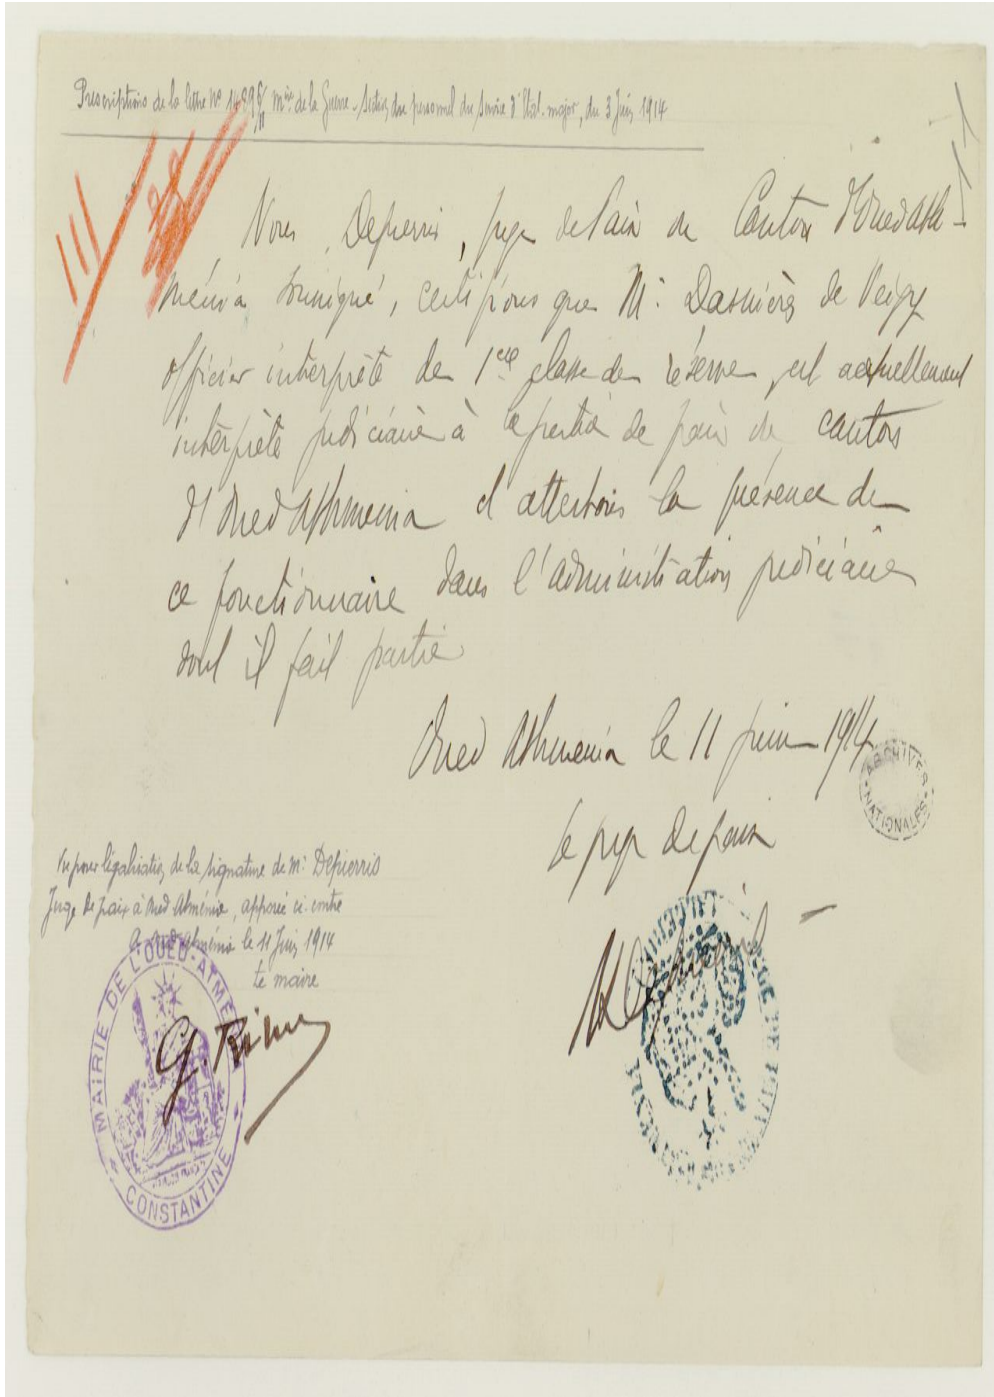 Prescriptions de la lettre No 14898/11 Mre de la Guerre - Section du personnel du service d'Etat-major, du 3 Juin 1914
Nous, Depierris, juge de Paix du Canton d'Oued Ath-
ménia soussigné, certifions que M. Dasnières de Veigy
officier interprète de 1ere classe de réserve, est actuellement
interprète judiciaire à la justice de paix du canton
d'Oued Athmenia et attestons la présence de
ce fonctionnaire dans l'administration judiciaire
dont il fait partie
Oued Athmenia le 11 juin 1914
Le juge de paix
ARCHIVES NATIONALES
Vu pour légalisation de la signature de M. Depierris
Juge de paix à Oued Atménia, apposée ci-contre
Oued Atménia le 11 Juin 1914
Le maire
MAIRIE DE L'OUED-ATME
CONSTANTINE
G.